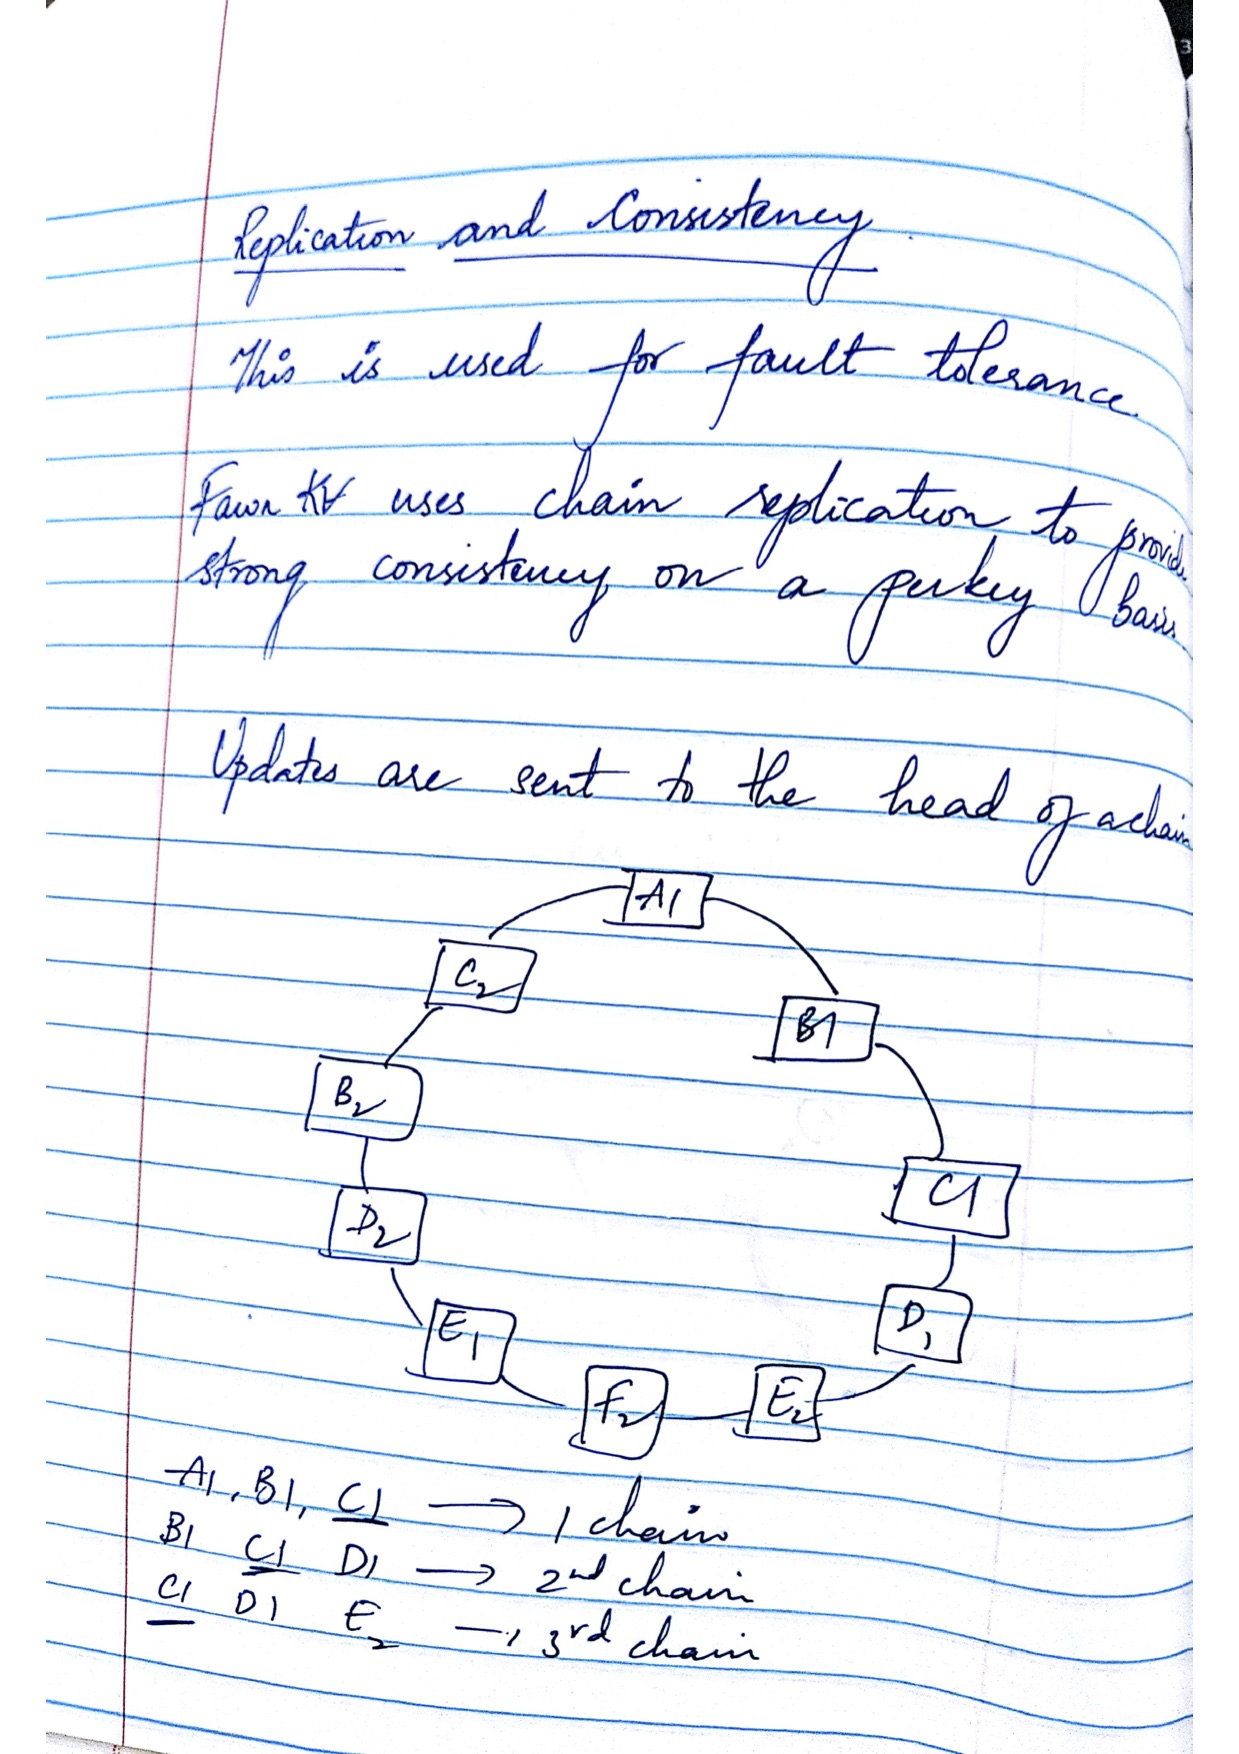 Replication and Consistency
This is used for fault tolerance.
Fawn KV uses chain replication to provide
strong consistency on a perkey basis
Updates are sent to the head of a chain
A1
C2
B1
B2
C1
D2
D1
E1
F2
E2
A1, B1, C1 → 1 chain
B1 C1 D1 → 2nd chain
C1 D1 E2 → 3rd chain